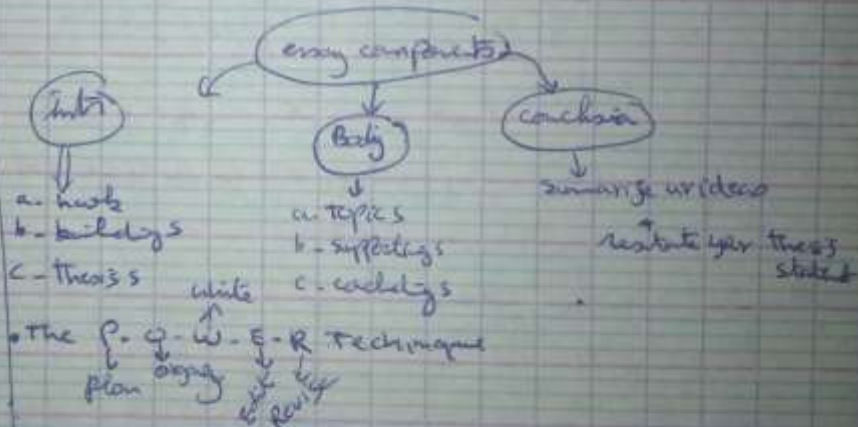 essay components
Intr
Body
conclusion
a - hook
b - building s
c - thesis s
a - topic s
b - supporting s
c - concluding s
summarize ur ideas
restate your thesis
The P-O-W-E-R Technique
write
plan
Edit
Revise